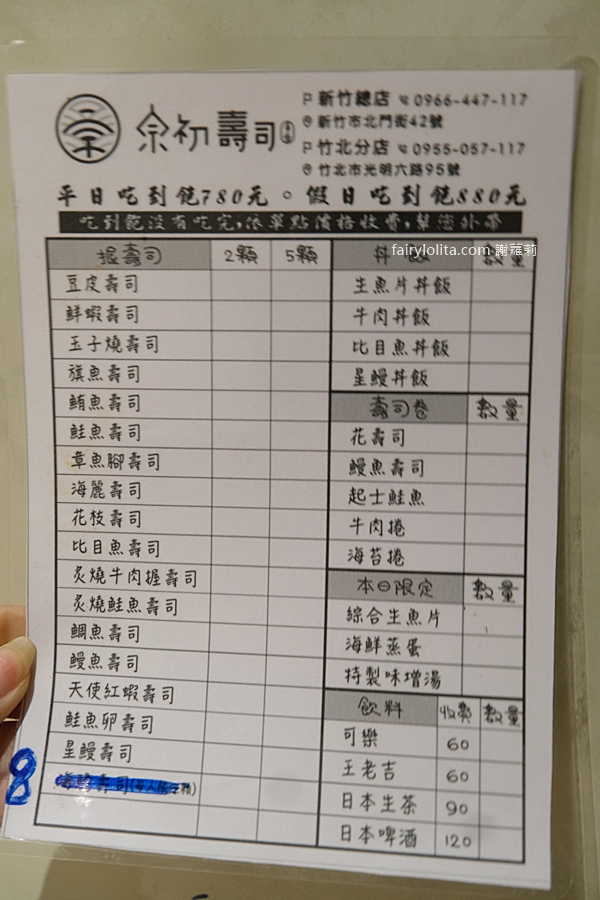 京初壽司
P 新竹總店 0966-447-117
新竹市北門街42號
P 竹北分店 0955-057-117
竹北市光明六路95號
平日吃到飽780元。假日吃到飽880元
吃到飽沒有吃完,依單點價格收費,幫您外帶
fairylolita.com 謝蘿莉
握壽司 2顆 5顆
豆皮壽司
鮮蝦壽司
玉子燒壽司
旗魚壽司
鮪魚壽司
鮭魚壽司
章魚腳壽司
海麗壽司
花枝壽司
比目魚壽司
炙燒牛肉握壽司
炙燒鮭魚壽司
鯛魚壽司
鰻魚壽司
天使紅蝦壽司
鮭魚卵壽司
星鰻壽司
壽司
8
丼飯 數量
生魚片丼飯
牛肉丼飯
比目魚丼飯
星鰻丼飯
壽司卷 數量
花壽司
鰻魚壽司
起士鮭魚
牛肉捲
海苔捲
本日限定 數量
綜合生魚片
海鮮蒸蛋
特製味增湯
飲料 收費 數量
可樂 60
王老吉 60
日本生茶 90
日本啤酒 120